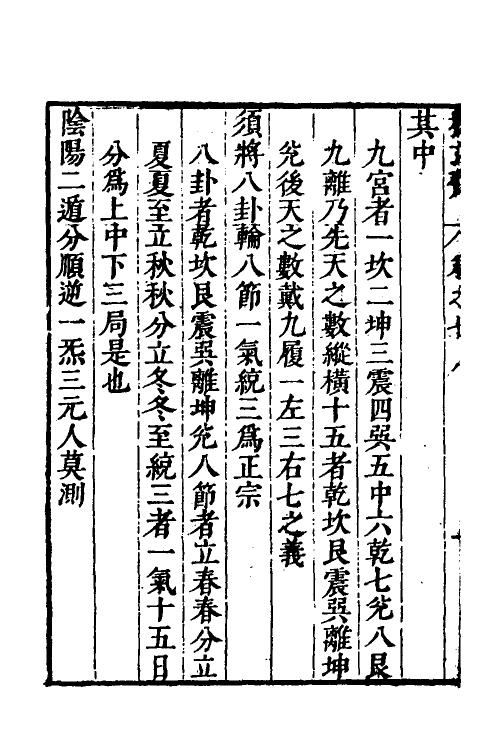 其中
九宮者一坎二坤三震四巽五中六乾七兊八艮
九離乃先天之數縱橫十五者乾坎艮震巽離坤
兊後天之數戴九履一左三右七之義
須將八卦輪八節一氣統三爲正宗
八卦者乾坎艮震巽離坤兊八節者立春春分立
夏夏至立秋秋分立冬冬至統三者一氣十五日
分爲上中下三局是也
陰陽二遁分順逆一炁三元人莫測